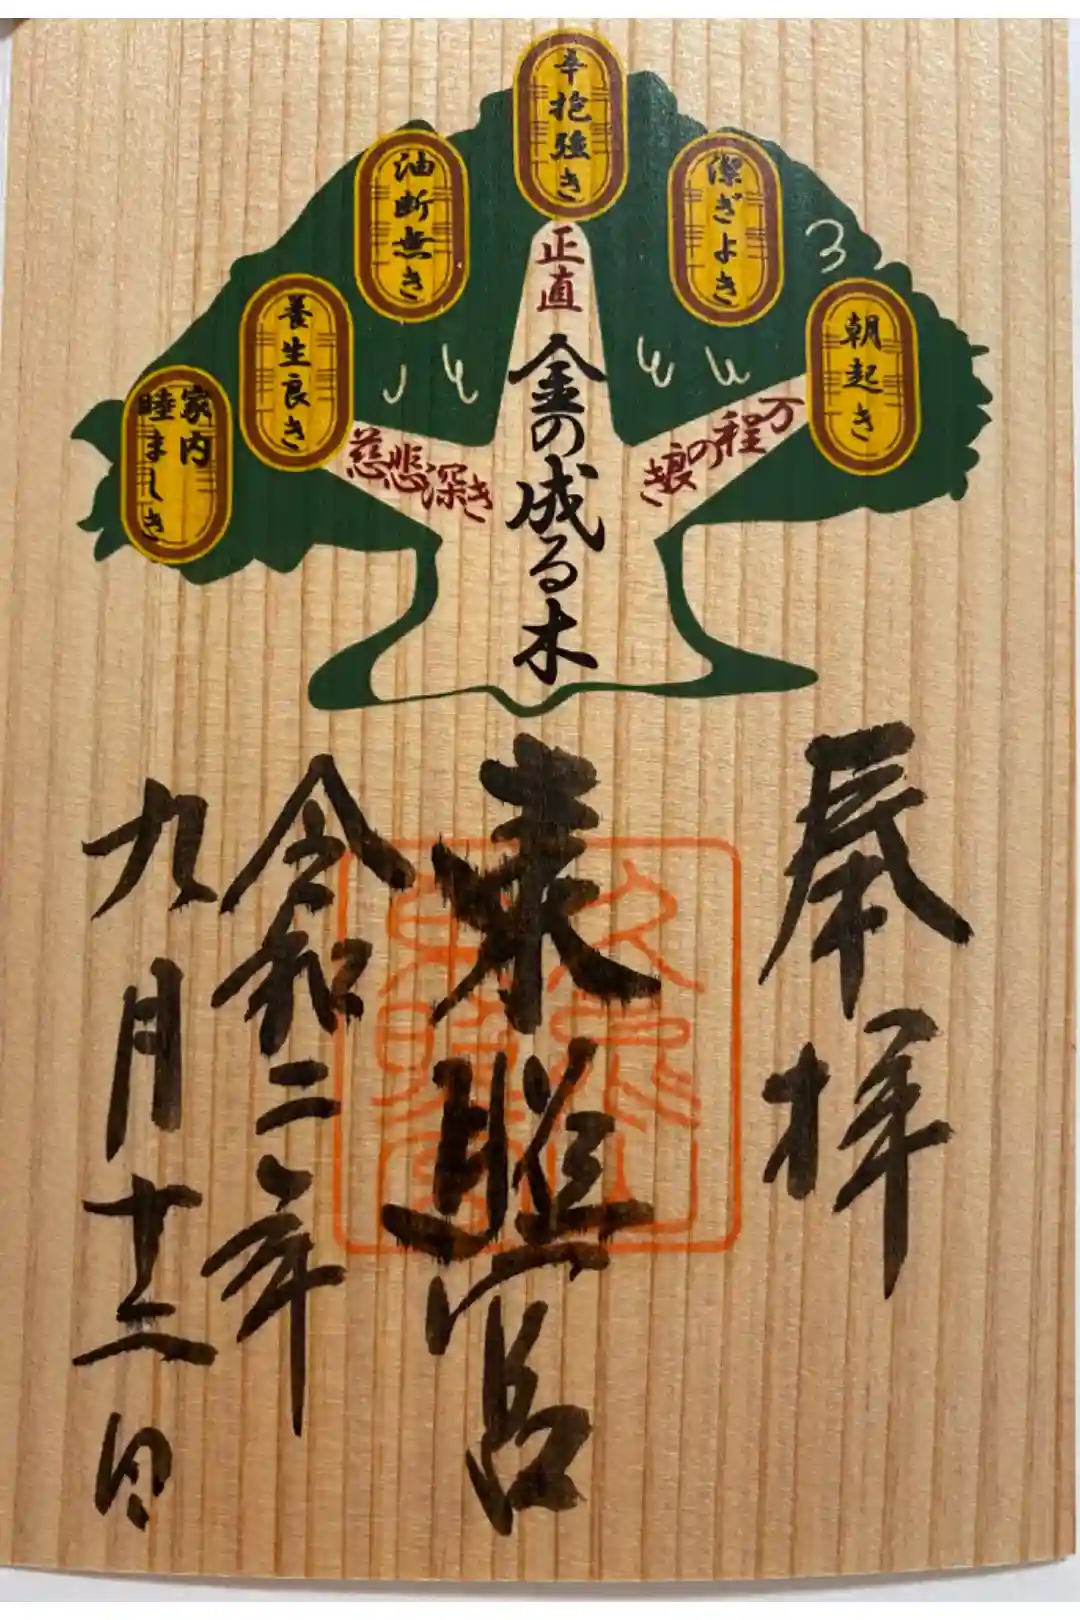 辛抱強き
潔ぎよき
朝起き
油断無き
養生良き
家内
睦ましき
正直
万程の良き
慈悲深き
金の成る木
奉拝
東照宮
久能山
東照宮
令和二年
九月十三日